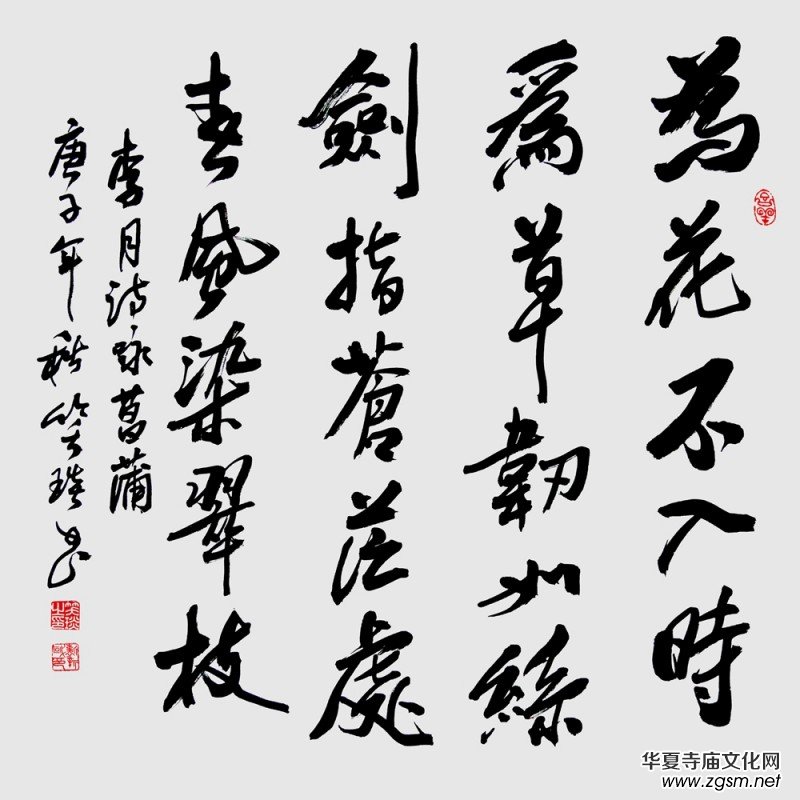 為花不入時
爲草韌如絲
劍指蒼茫處
春風染翠枝
李月诗咏菖蒲
庚子年秋笑琰书
华夏寺庙文化网
www.zgsm.net